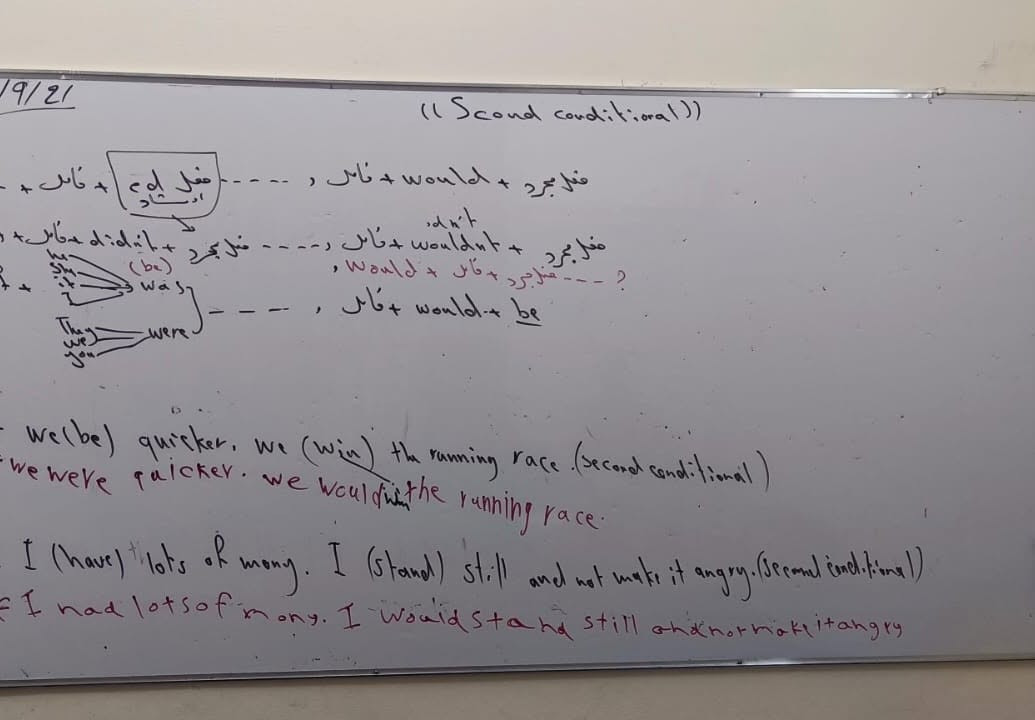 19/21
((Second conditional))
+ فاعل + فعل ed ----- , فاعل + would + فعل مجرد
+ فاعل + didn't + فعل مجرد ----, فاعل + wouldn't + فعل مجرد
, would + فاعل + فعل مجرد --- ?
+ he
she
it
I
(be)
was
They
we
you
were
- - - - , فاعل + would + be
we(be) quicker, we (win) the running race.(second conditional)
we were quicker. we would win the running race.
I (have) lots of mony. I (stand) still and not make it angry.(second conditional)
I had lots of mony. I would stand still and not make it angry